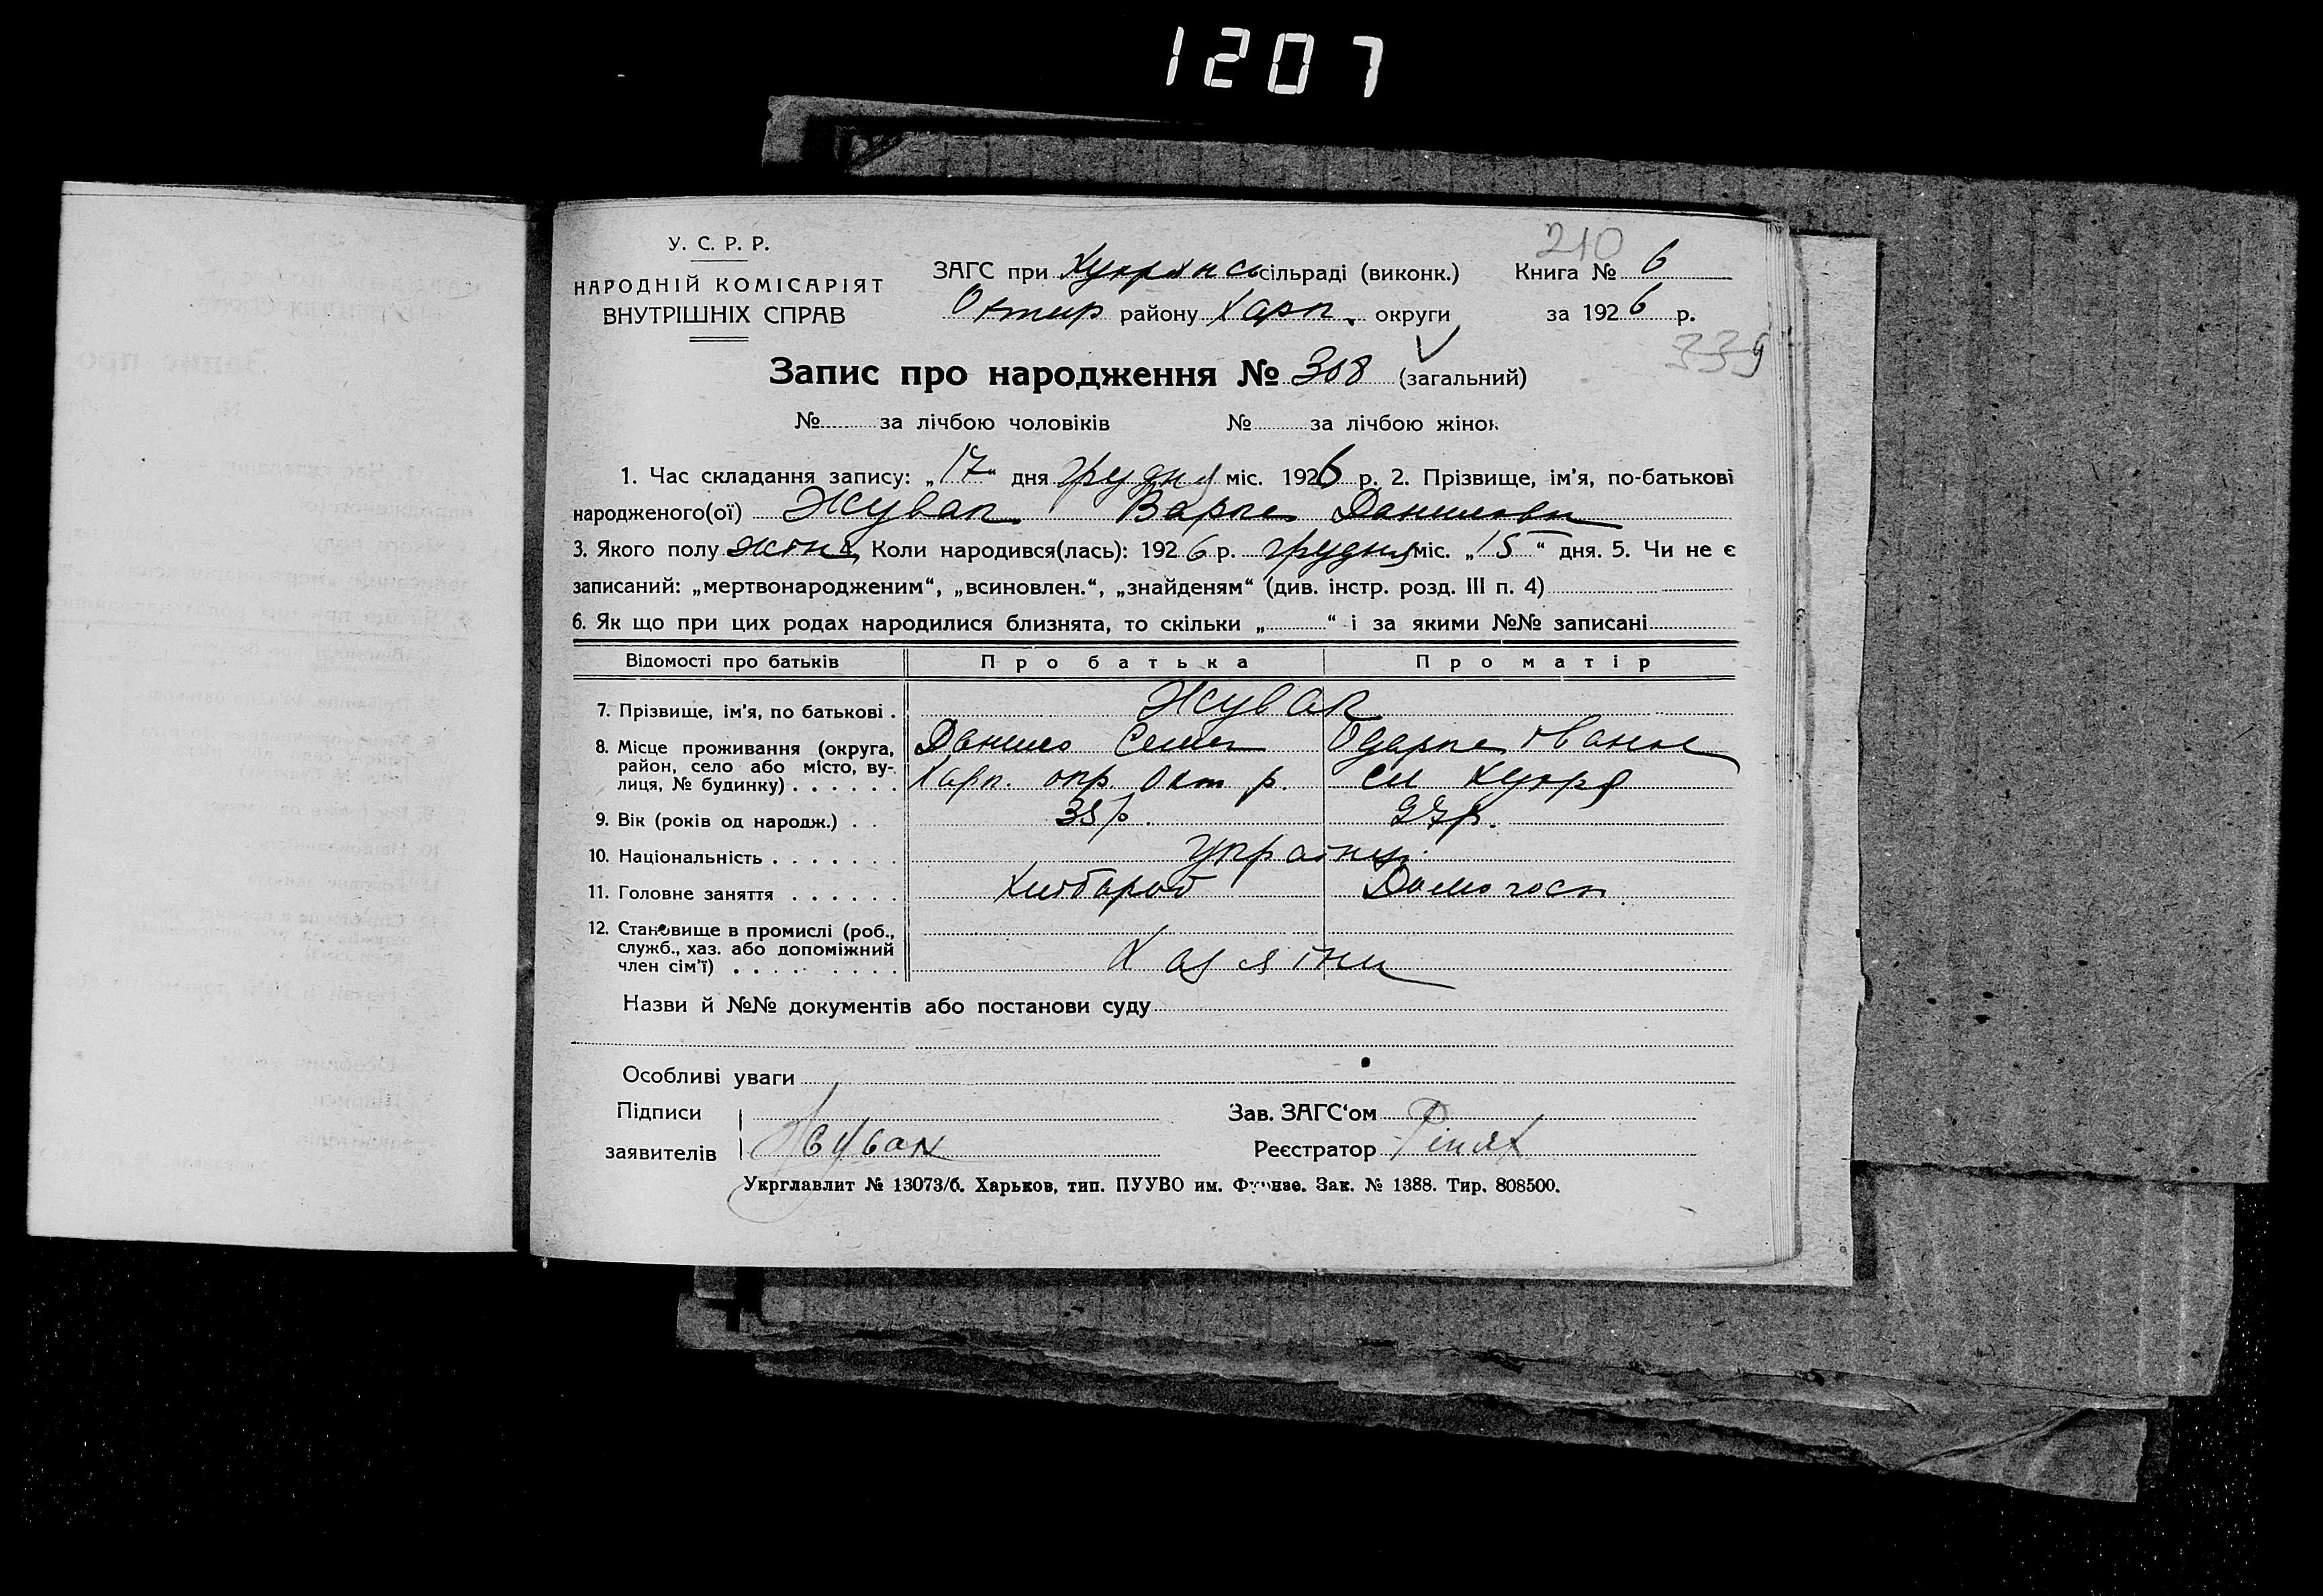 1207
У. С. Р. Р.
НАРОДНІЙ КОМІСАРІЯТ
ВНУТРІШНІХ СПРАВ
210
ЗАГС при Хухрянсь сільраді (виконк.) Книга № 6
Охтир району Харк. округи за 1926 р.
339
Запис про народження № 308 (загальний)
№ за лічбою чоловіків № за лічбою жінок
1. Час складання запису: „17“ дня грудня міс. 1926 р. 2. Прізвище, ім'я, по-батькові
народженого(ої) Жувак Варка Данилова
3. Якого полу жіноч. Коли народився(лась): 1926 р. грудня міс. „15“ дня. 5. Чи не є
записаний: „мертвонародженим“, „всиновлен.“, „знайденям“ (див. інстр. розд. III п. 4)
6. Як що при цих родах народилися близнята, то скільки „ “ і за якими №№ записані
Відомості про батьків Про батька Про матір
7. Прізвище, ім'я, по батькові . Жувак
8. Місце проживання (округа, Данило Семен Одарка Іванов
район, село або місто, ву-
лиця, № будинку) . . . . . . Харк. окр. Охт р. сл Хухря
9. Вік (років од народж.) . . 35 р. 27 р.
10. Національність . . . . . . . україн
11. Головне заняття . . . . . . Хлібороб Домогосп
12. Становище в промислі (роб.,
служб., хаз. або допоміжний
член сім'ї) . . . . . . . . . Хазяїни
Назви й №№ документів або постанови суду
Особливі уваги
Підписи Зав. ЗАГС'ом
заявителів Жувак Реєстратор
Укрглавлит № 13073/б. Харьков, тип. ПУУВО им. Фрунзе. Зак. № 1388. Тир. 808500.